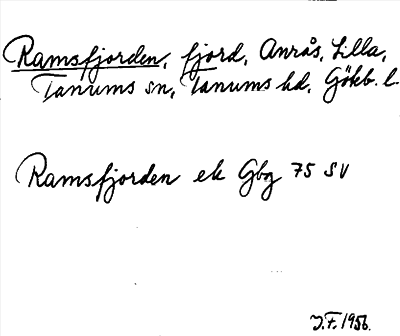 Ramsfjorden, fjord, Anrås, Lilla,
Tanums sn, Tanums hd, Gökb. l.
Ramsfjorden ek Gbg 75 SV
J.F. 1956.